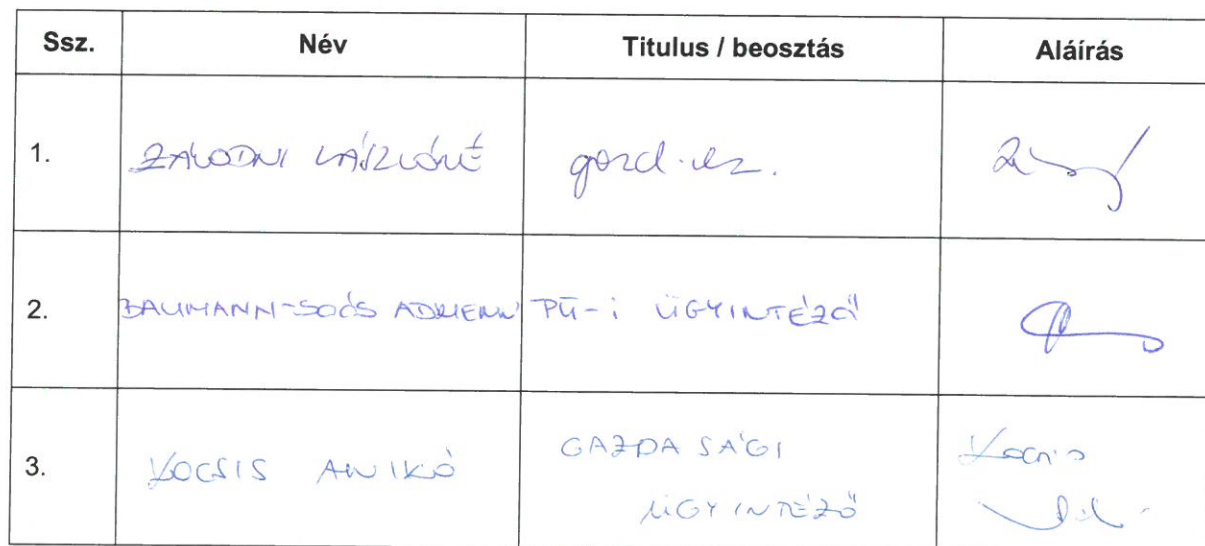 Ssz. Név Titulus / beosztás Aláírás
1. ZÁVODNI LÁSZLÓNÉ gazd. vez.
2. BAUMANN-SOÓS ADRIENN PÜ-i ÜGYINTÉZŐ
3. KOCSIS ANIKÓ GAZDASÁGI
ÜGYINTÉZŐ
Kocsis